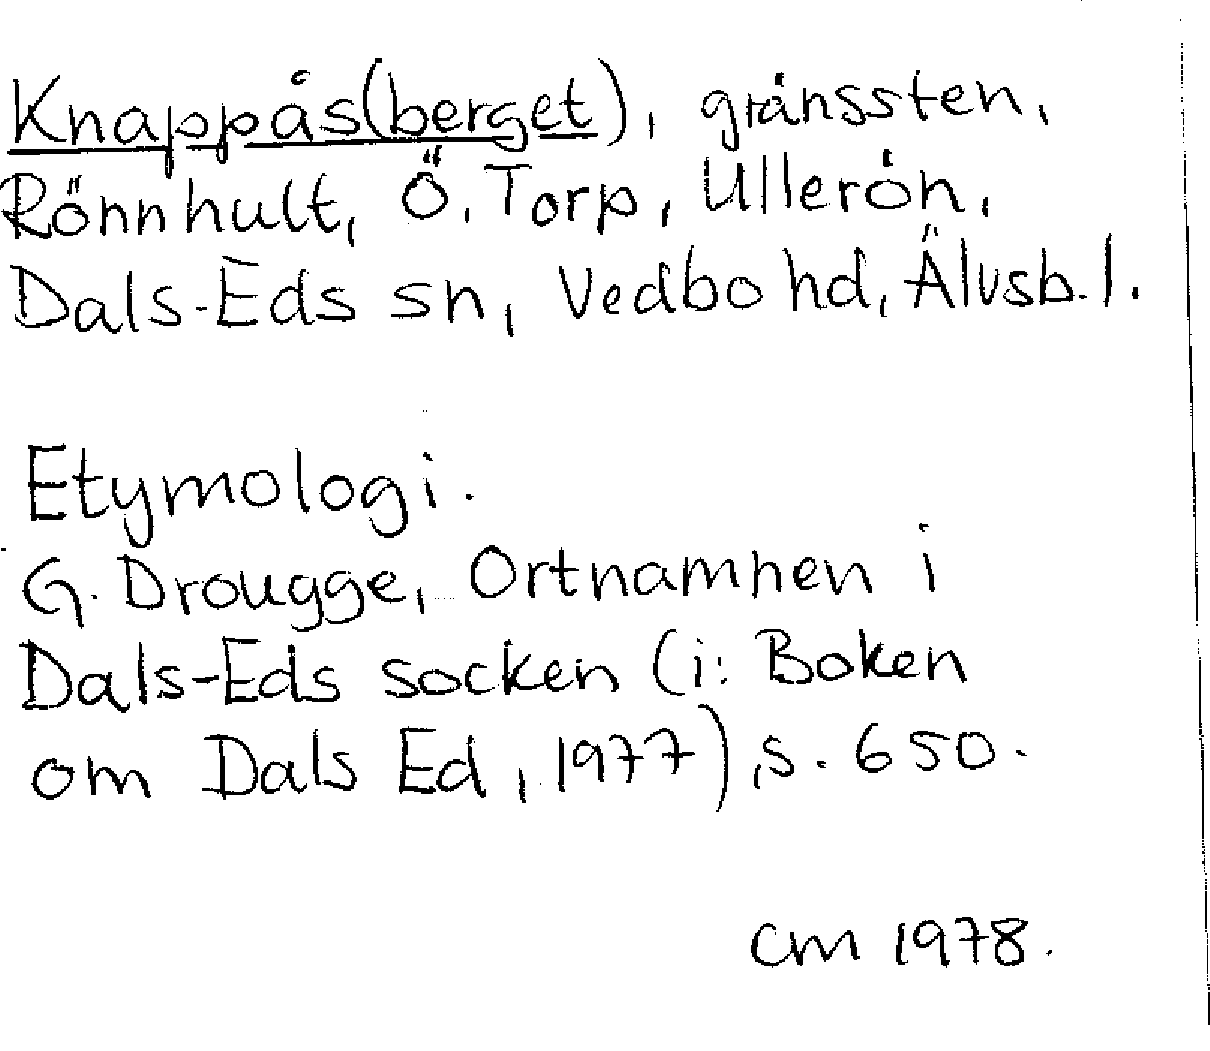 Knappås(berget), gränssten,
Rönnhult, Ö. Torp, Ullerön,
Dals-Eds sn, Vedbo hd, Älvsb. l.
Etymologi.
G. Drougge, Ortnamnen i
Dals-Eds socken (i: Boken
om Dals Ed, 1977), s. 650.
CM 1978.